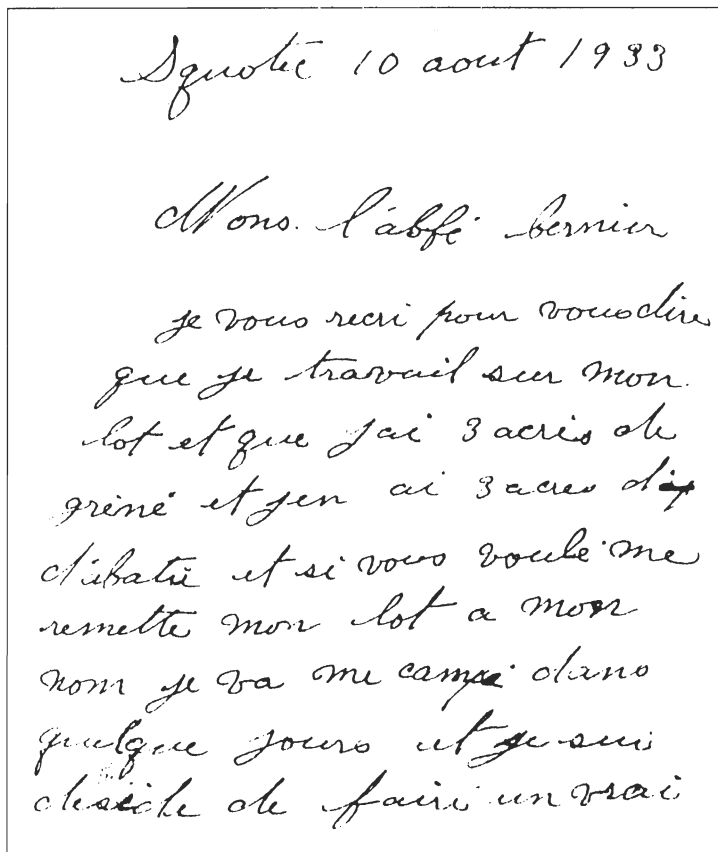 Squatec 10 aout 1933
Mons. l'abbé bernier
je vous recri pour vous dire
que je travail sur mon
lot et que jai 3 acres de
grené et jen ai 3 acres
d'ébatu et si vous voulé me
remette mon lot a mon
nom je va me campé dans
quelque jours et je sui
deside de faire un vrai